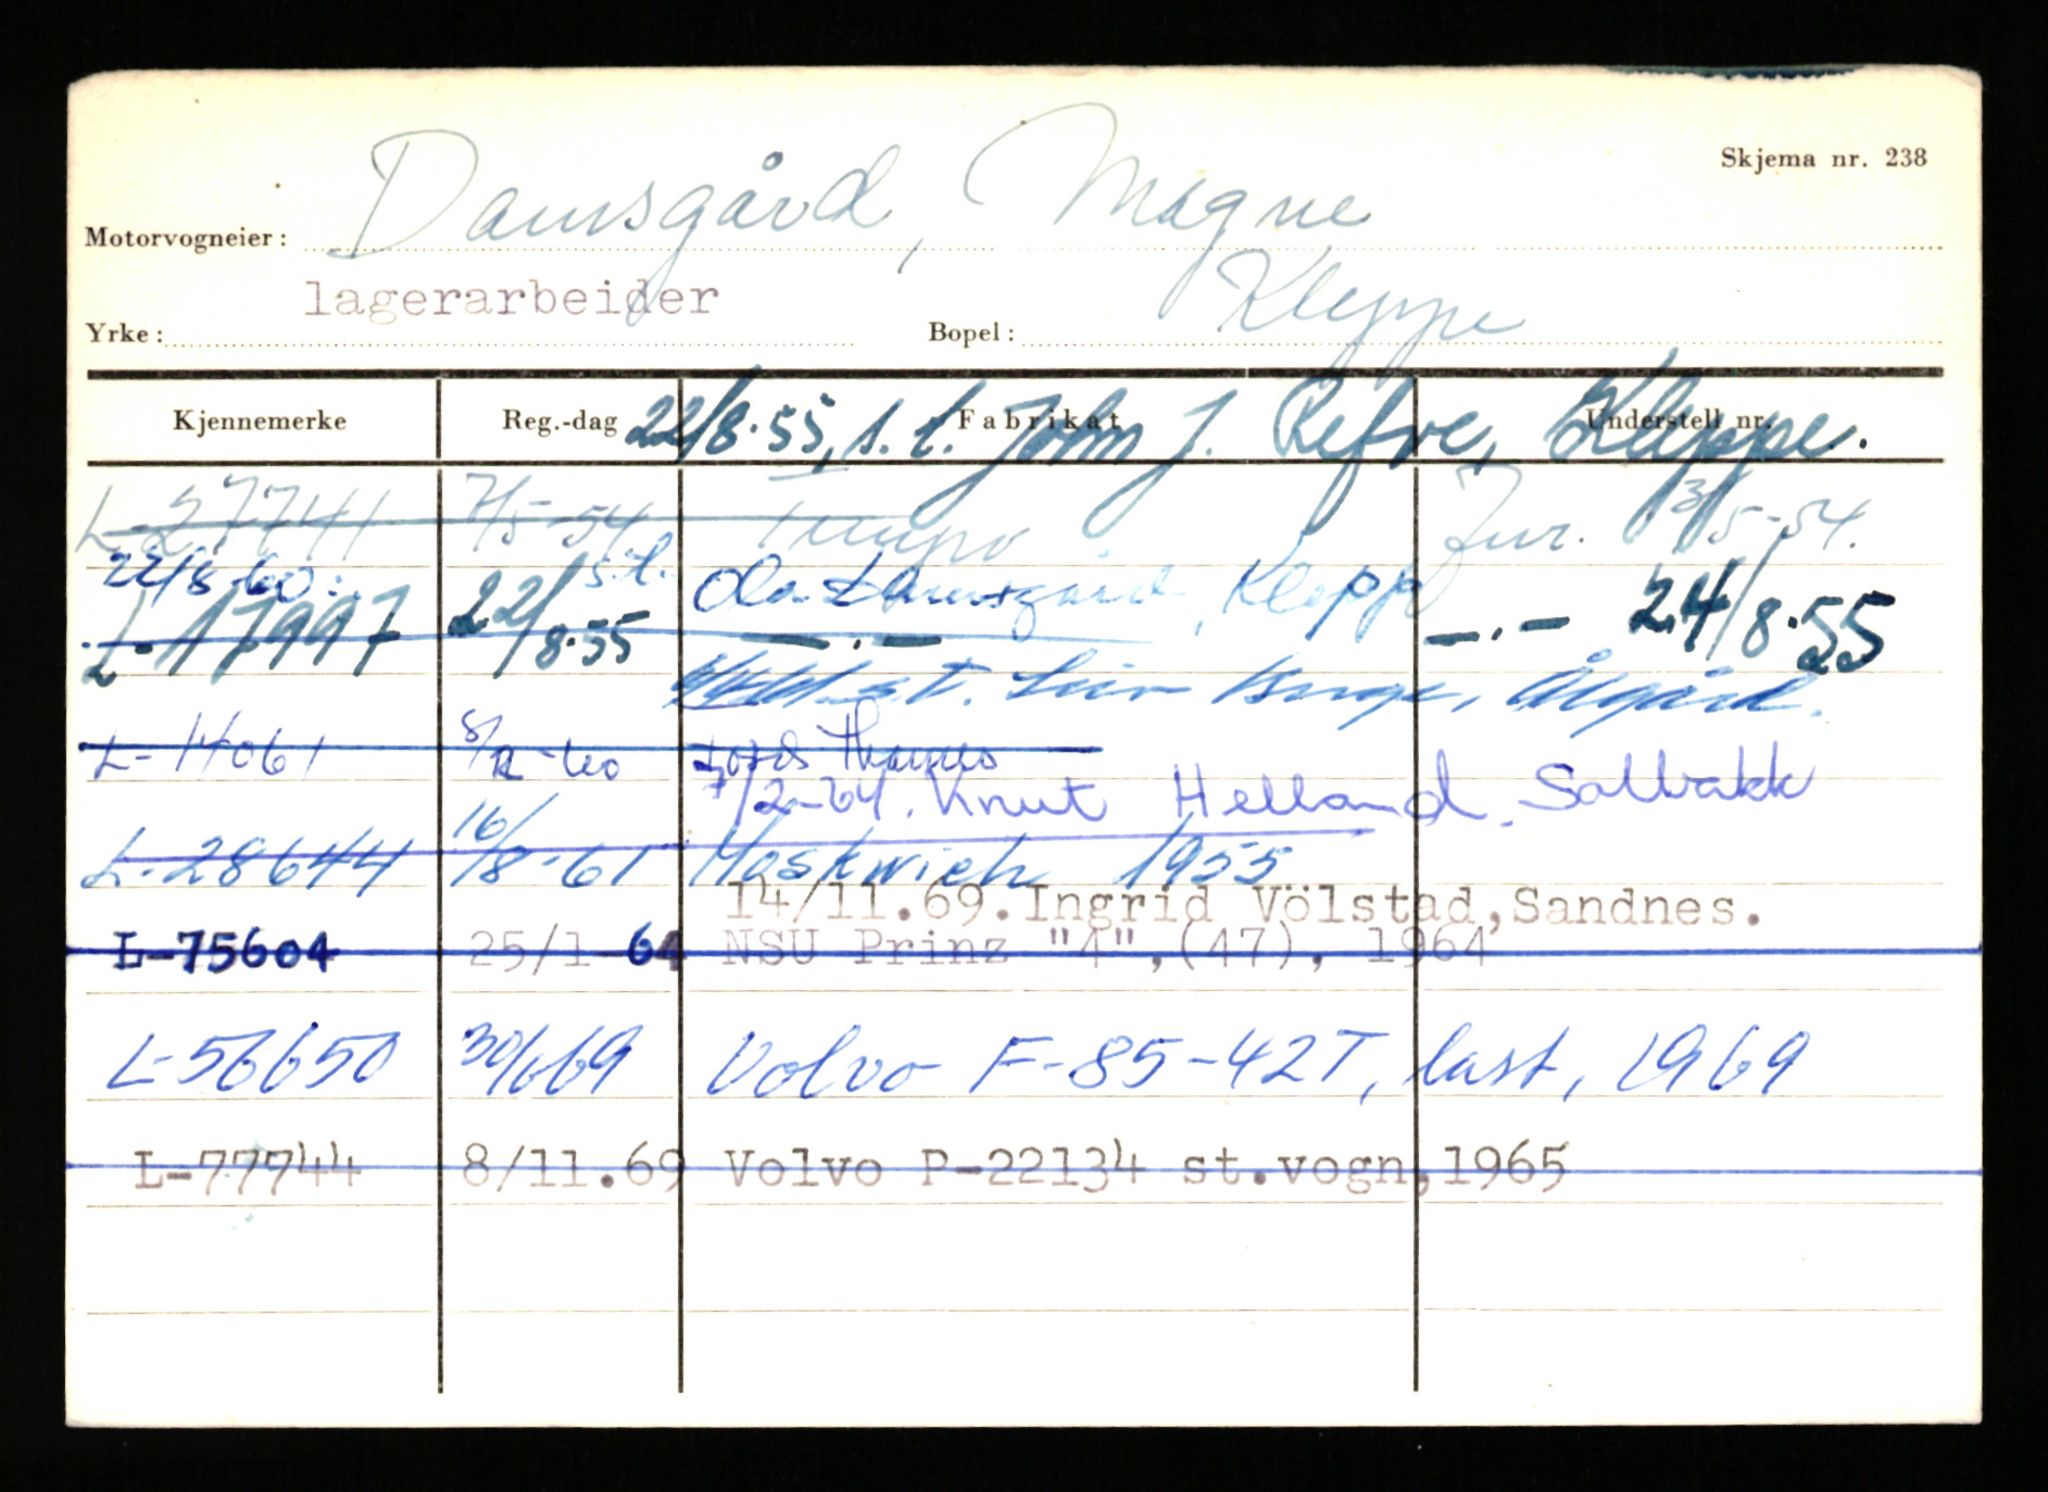 Skjema nr. 238
Motorvogneier: Damsgård, Magne
Yrke: lagerarbeider Bopel: Kleppe
Kjennemerke Reg.-dag Fabrikat Understell nr.
22/8.55, s.t. John J. Refve, Kleppe.
L-27741 7/5-54 Tempo Fur. 3/5-54.
22/8-60: s.t. Ola Damsgård, Klepp
L-17997 22/8.55 —.— —.— 24/8.55
s.t. Ålgård.
L-14061 8/12-60 Ford Thames
7/2-64. Knut Helland
L-28644 16/8-61 Moskwich 1955
14/11.69. Ingrid Völstad, Sandnes.
L-75604 25/1-64 NSU Prinz "4", (47), 1964
L-56650 30/6 69 Volvo F-85-42T, last, 1969
L-77744 8/11.69 Volvo P-22134 st.vogn, 1965